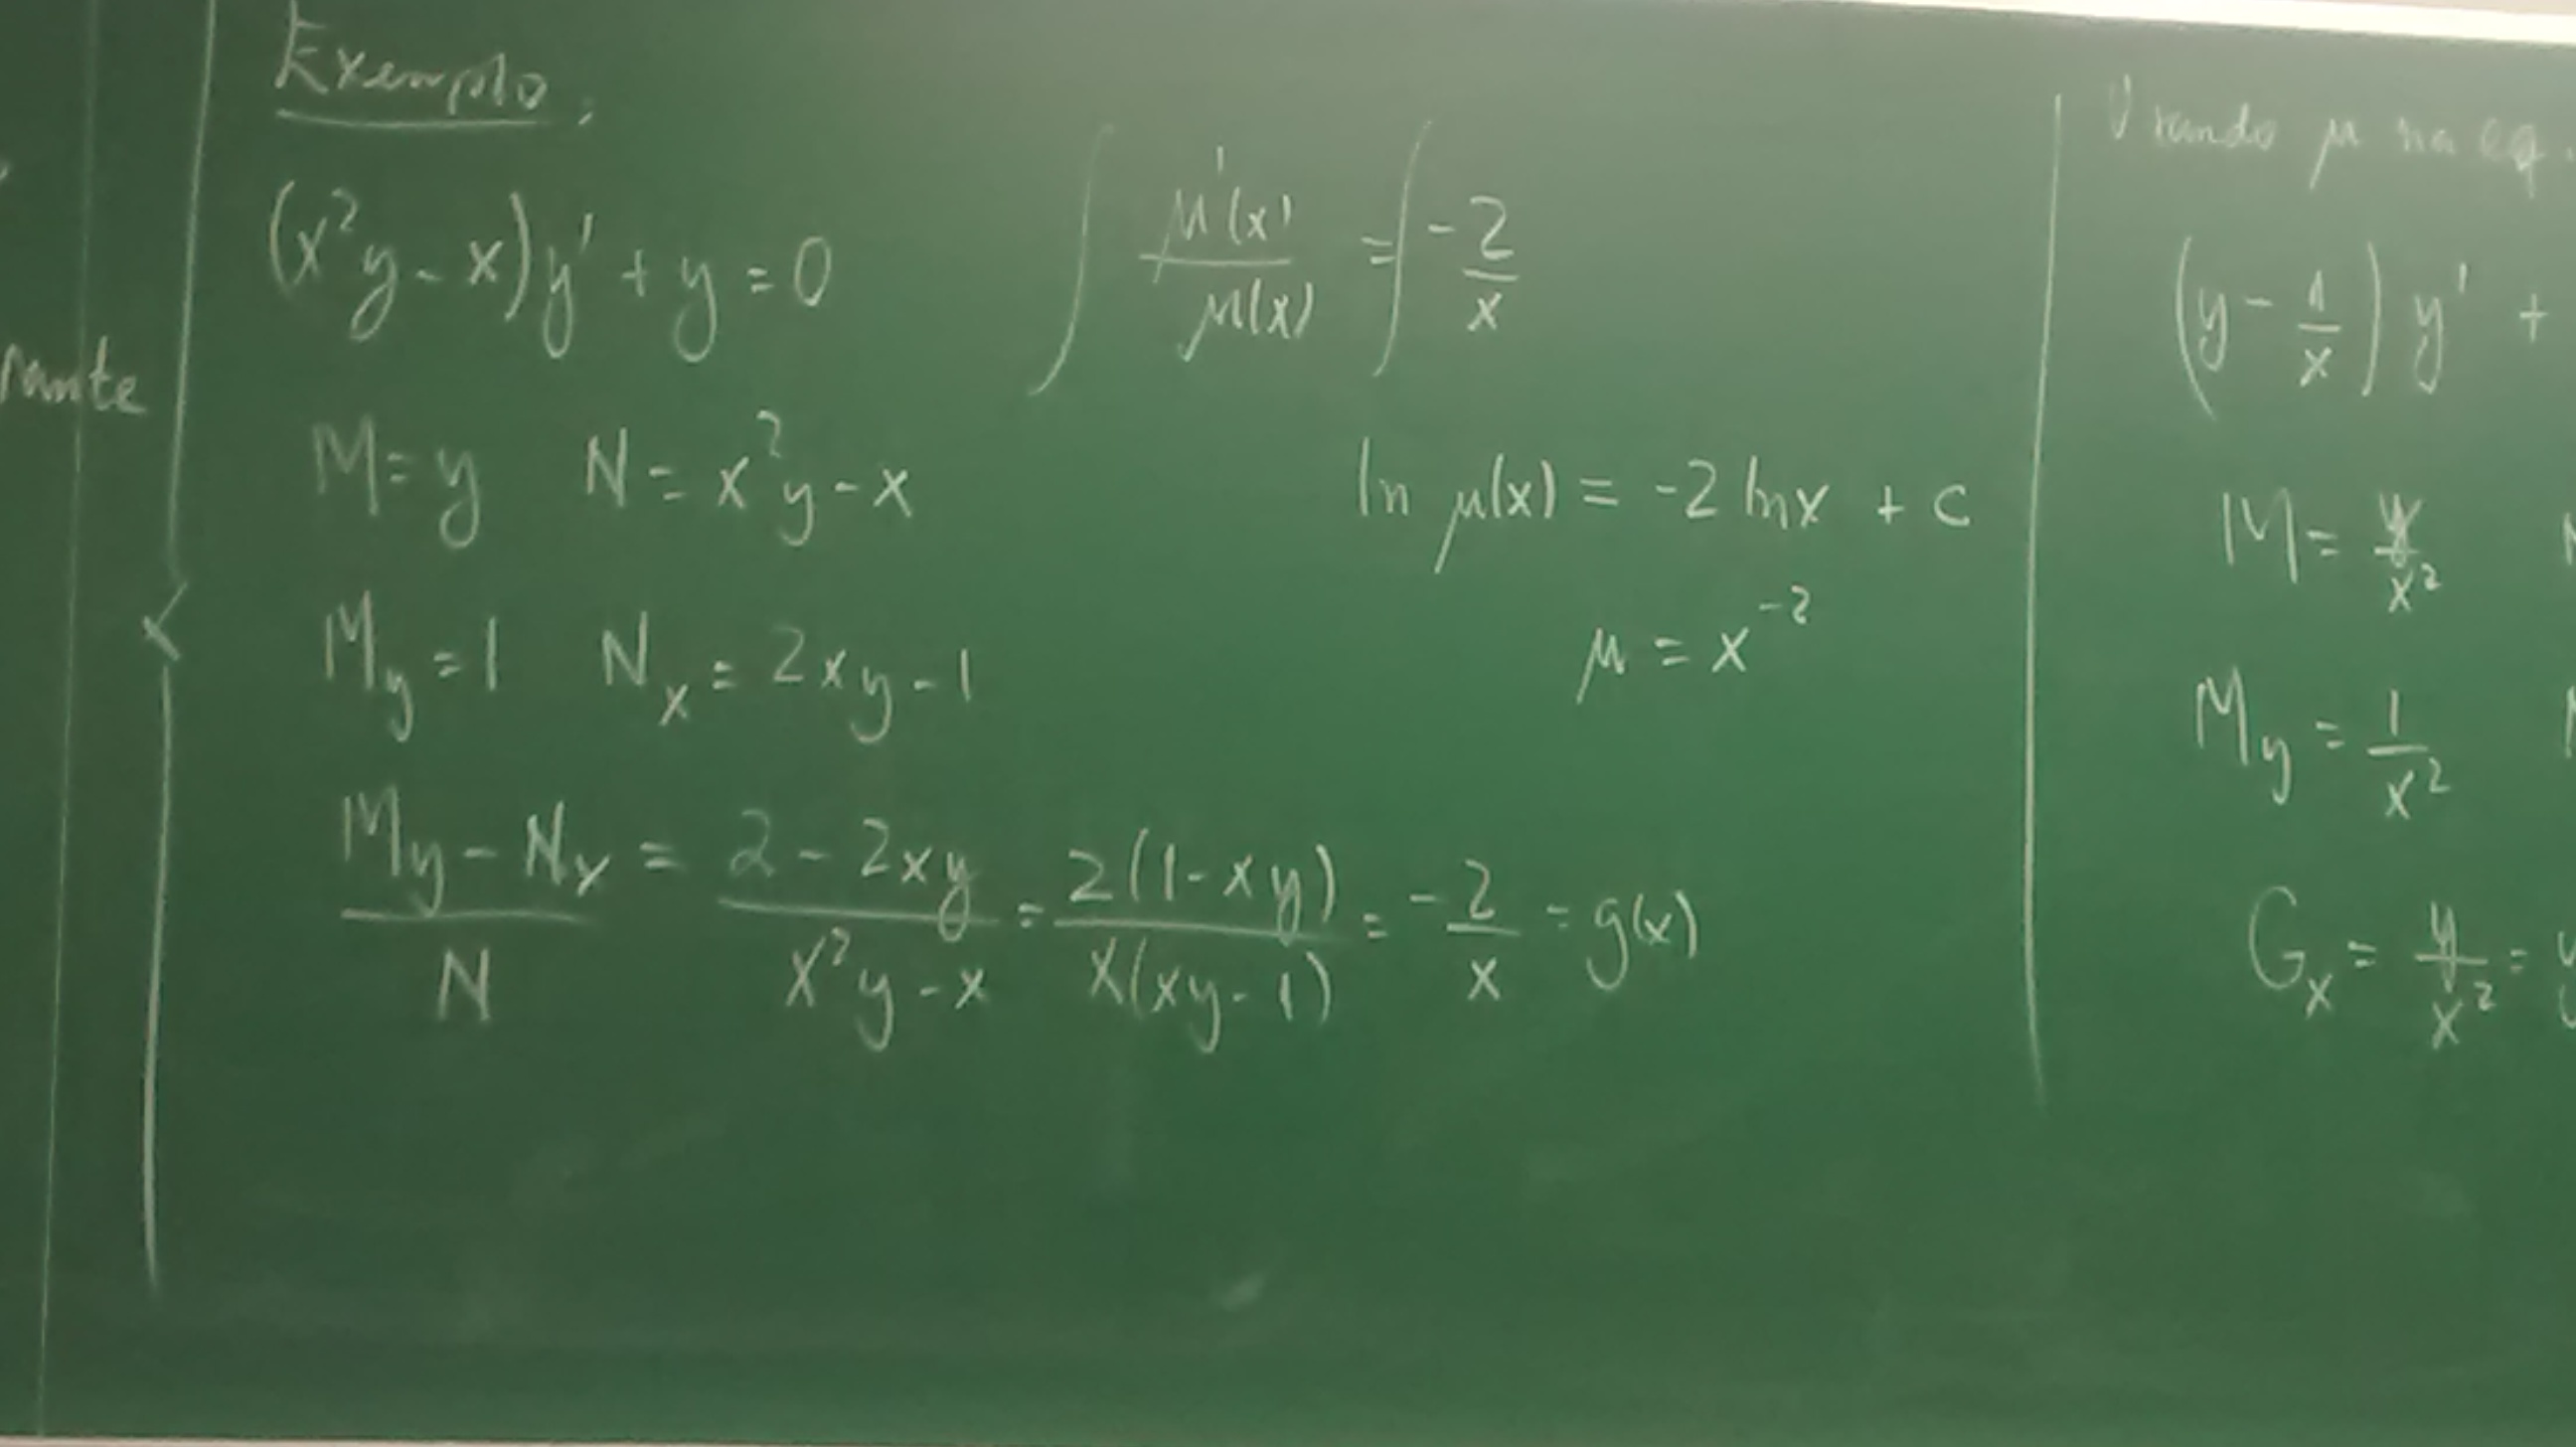 Exemplo:
(x²y - x)y' + y = 0
M = y N = x²y - x
M_y = 1 N_x = 2xy - 1
(M_y - N_x)/N = (2 - 2xy)/(x²y - x) = 2(1 - xy)/(x(xy - 1)) = -2/x = g(x)
∫ μ'(x)/μ(x) = ∫ -2/x
ln μ(x) = -2 ln x + c
μ = x⁻²
Usando μ na eq.
(y - 1/x) y' +
M = y/x²
M_y = 1/x²
G_x = y/x² =